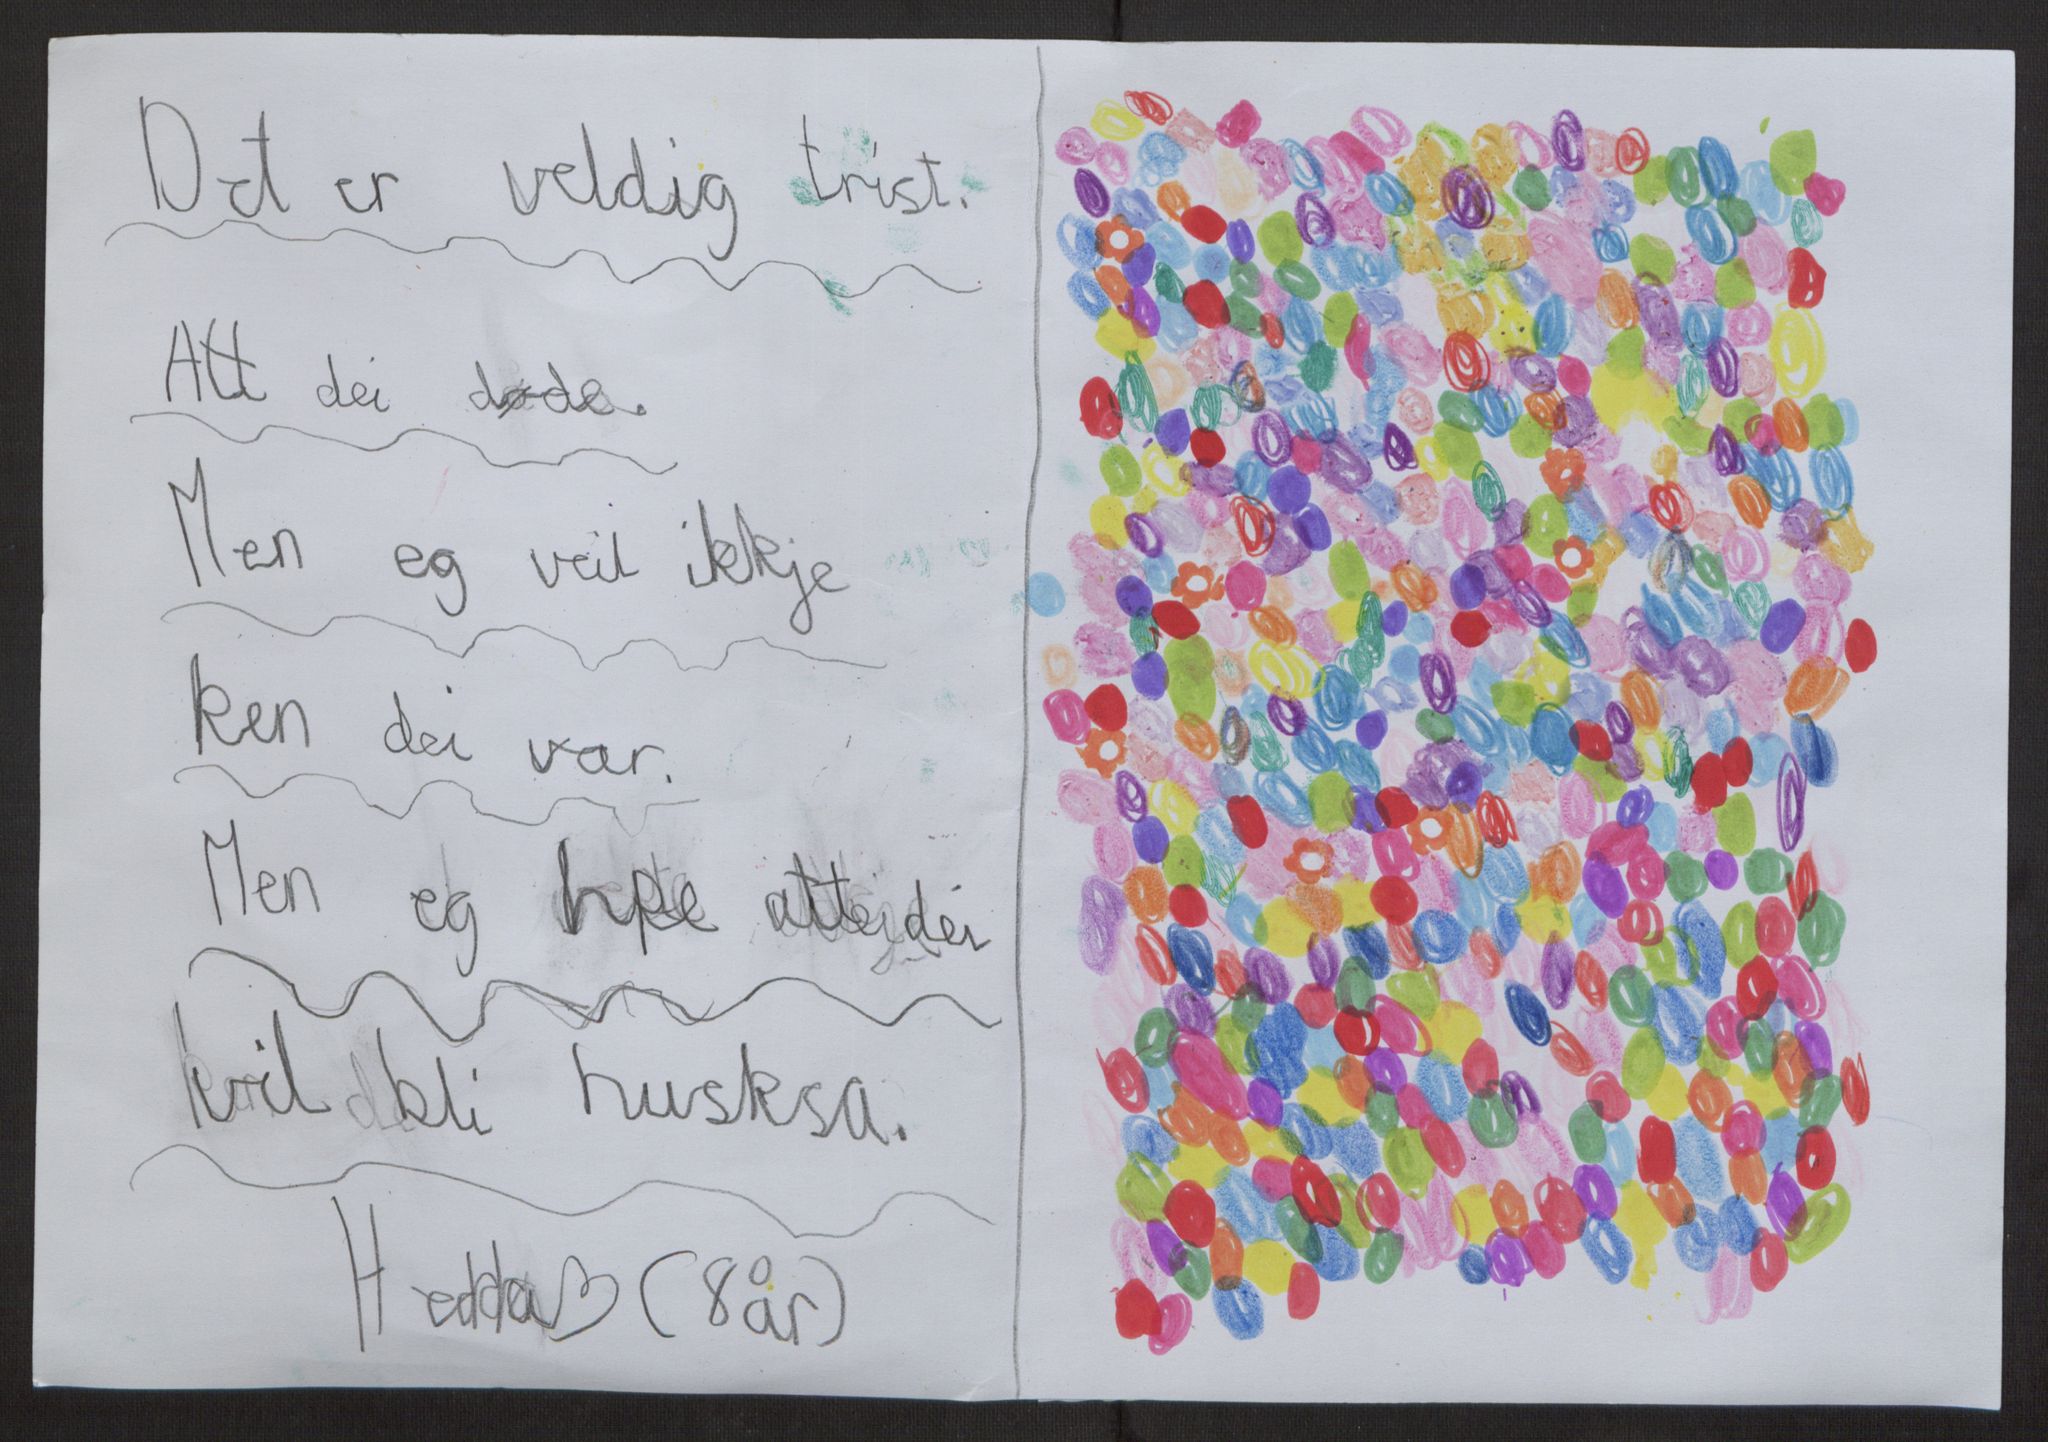 Det er veldig trist.
Att dei døde.
Men eg veit ikkje
ken dei var.
Men eg håpe atte dei
vil bli huska.
Hedda♡ (8 år)